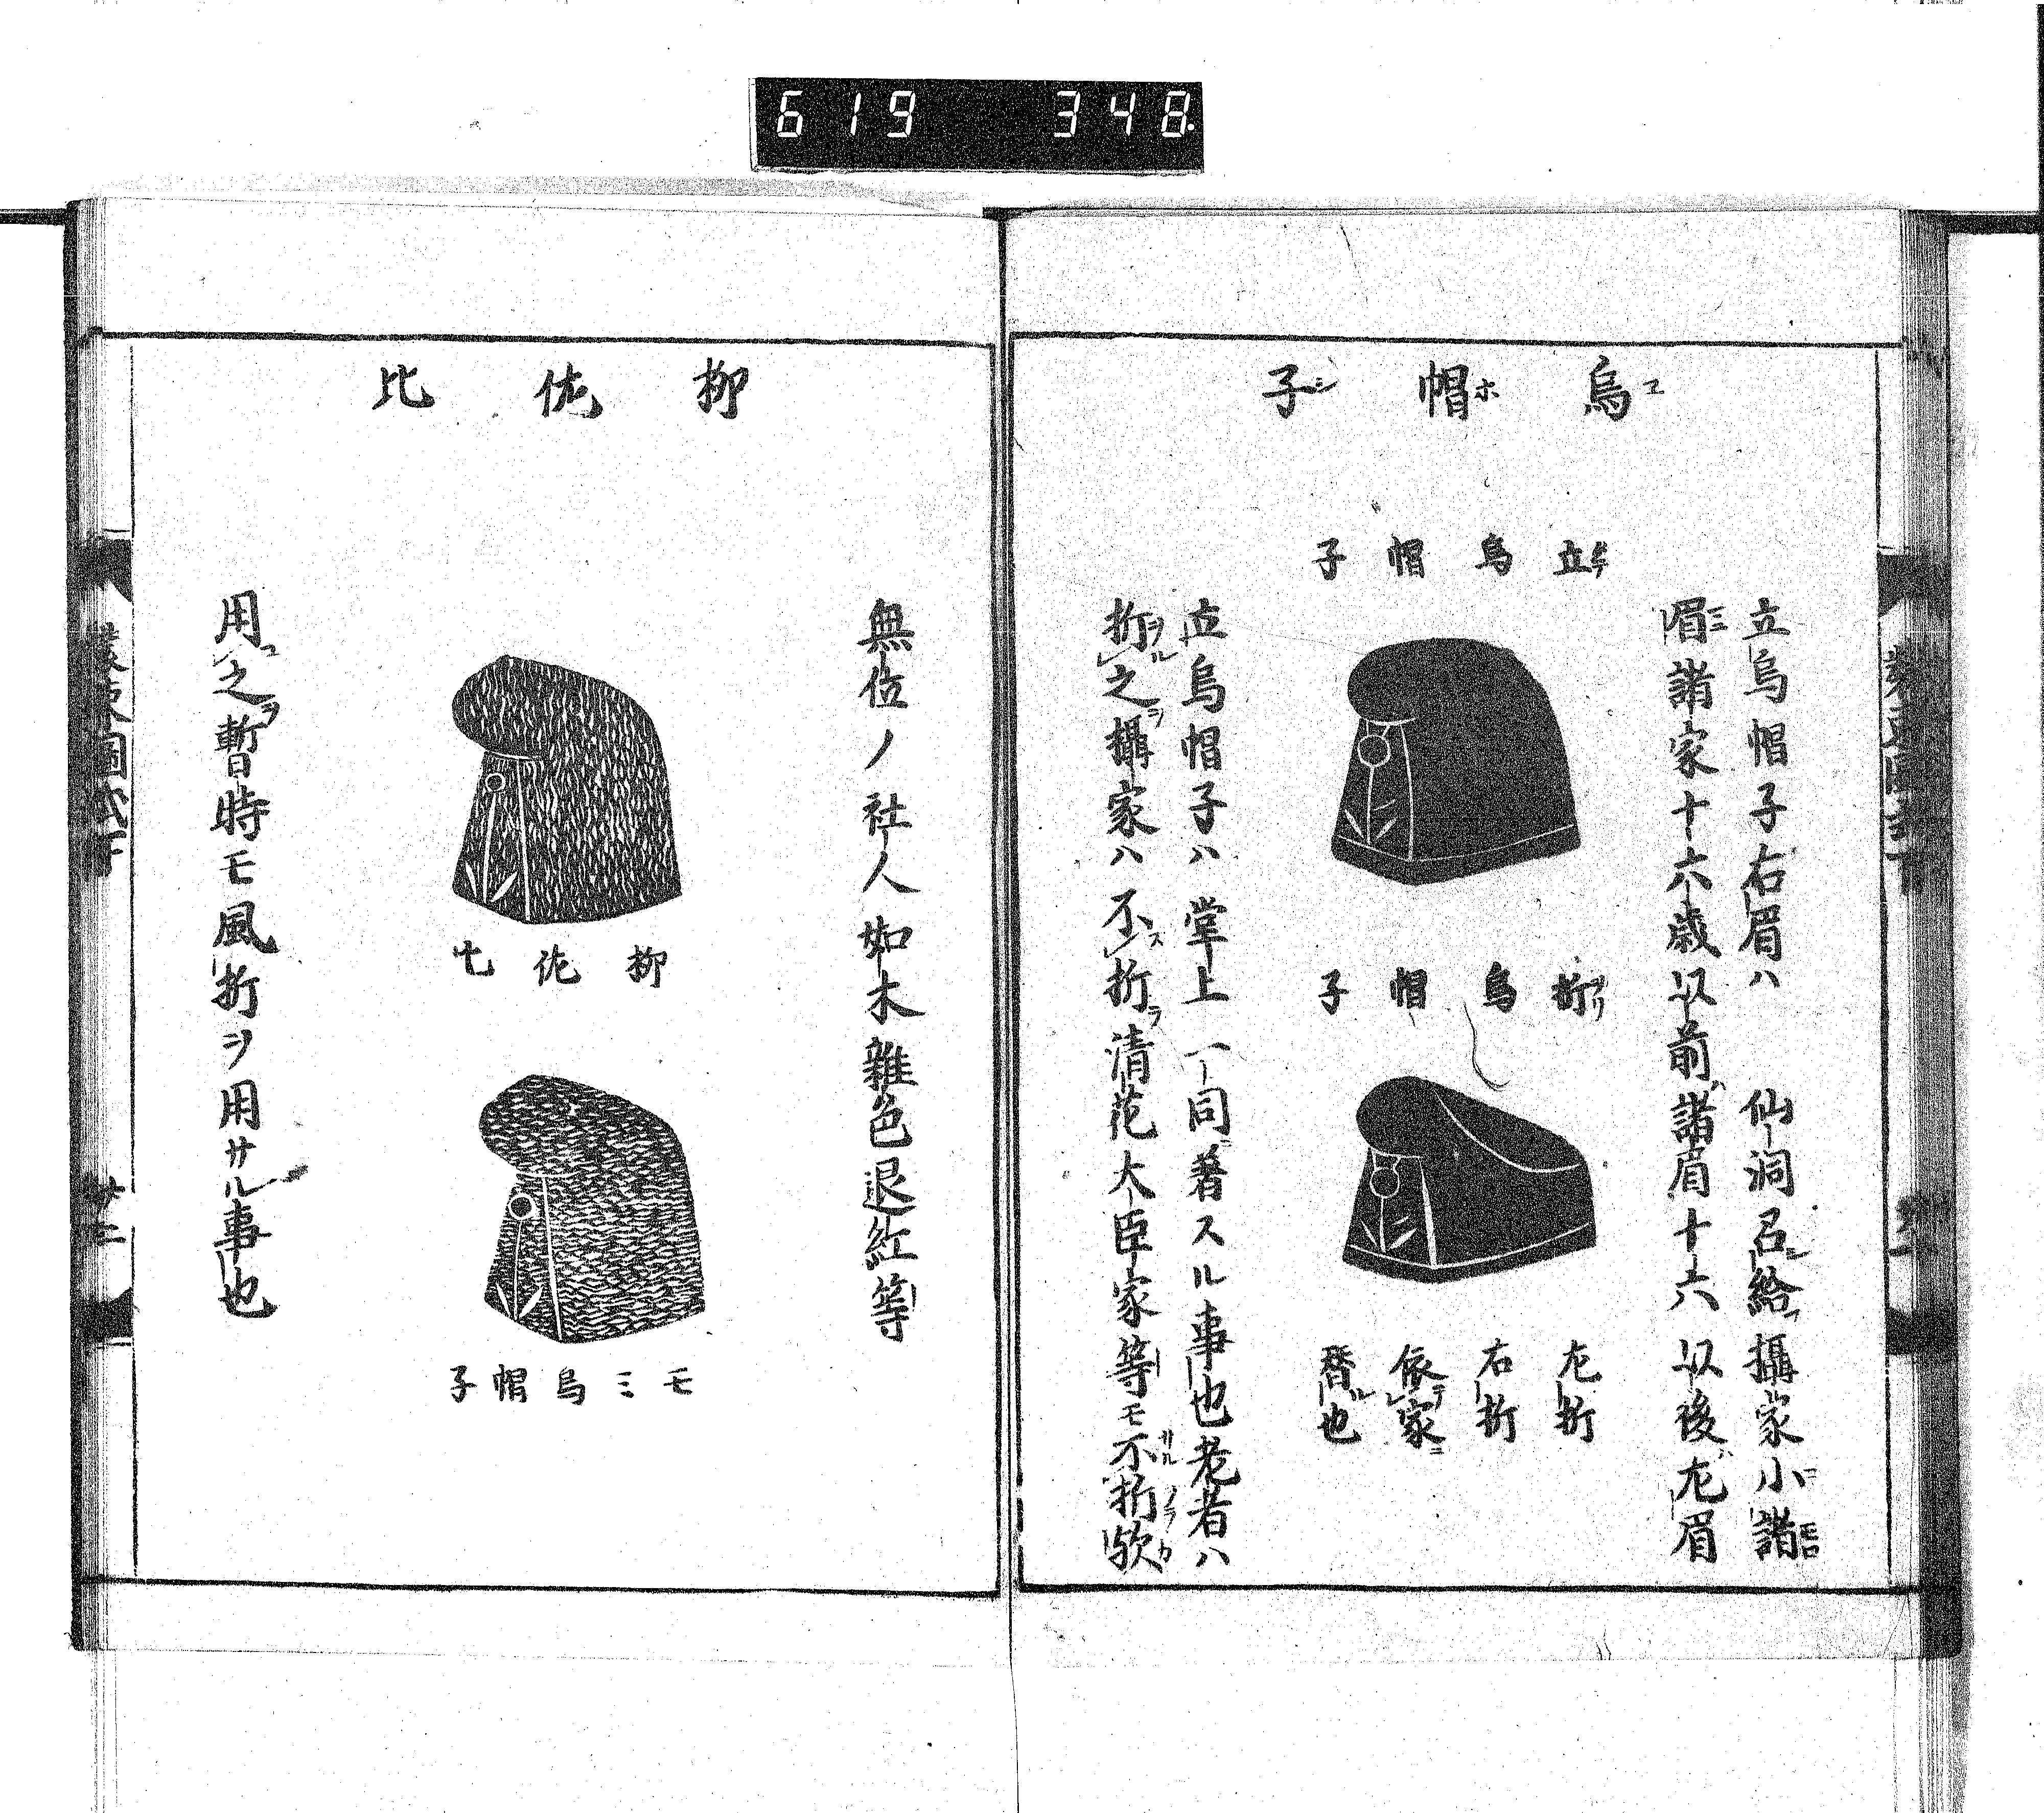 619 348.
烏帽子
エホシ
立烏帽子右眉ハ 仙洞召給攝家小諸
眉諸家十六歳以前諸眉十六以後左眉
立烏帽子
折烏帽子
左折
右折
依家
替也
立烏帽子ハ堂上一同著スル事也老者ハ
折之攝家ハ不折清花大臣家等モ不折歟
柳佐比
無位ノ社人如木雜色退紅等
柳佐
モミ烏帽子
用之暫時モ風折ヲ用サル事也